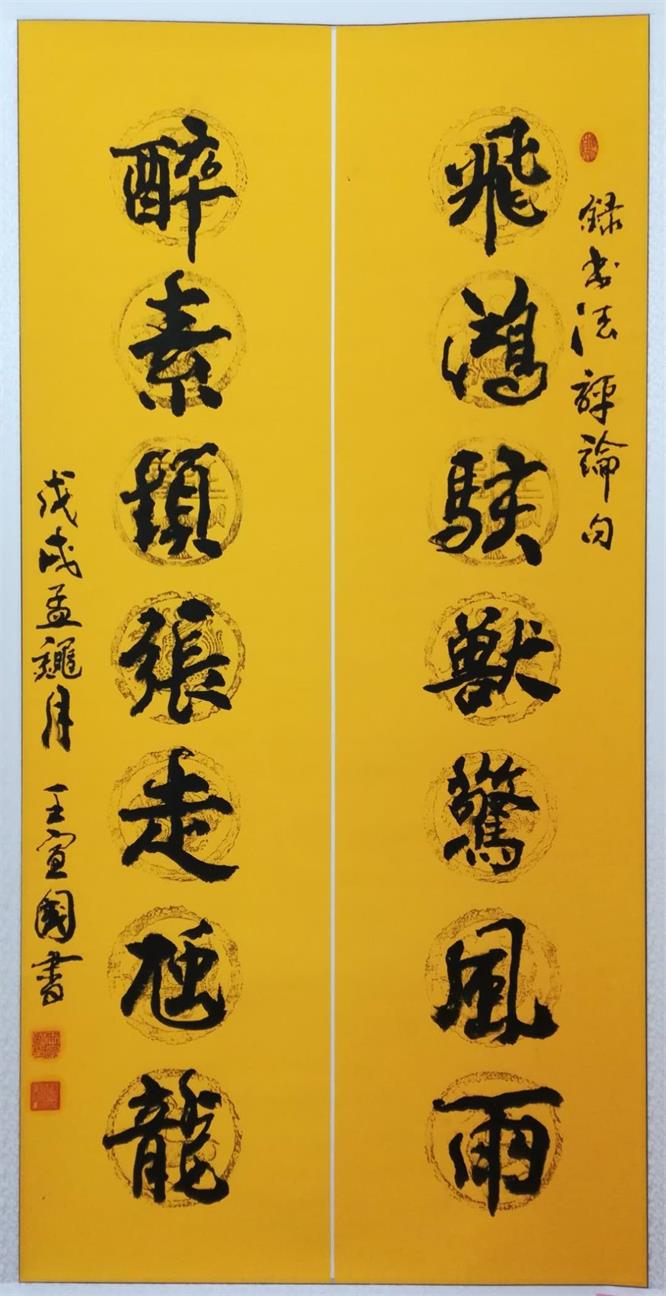 錄書法評論句
飛鴻駭獸驚風雨
醉素顛張走虺龍
戊戌孟龝月 王宣國書